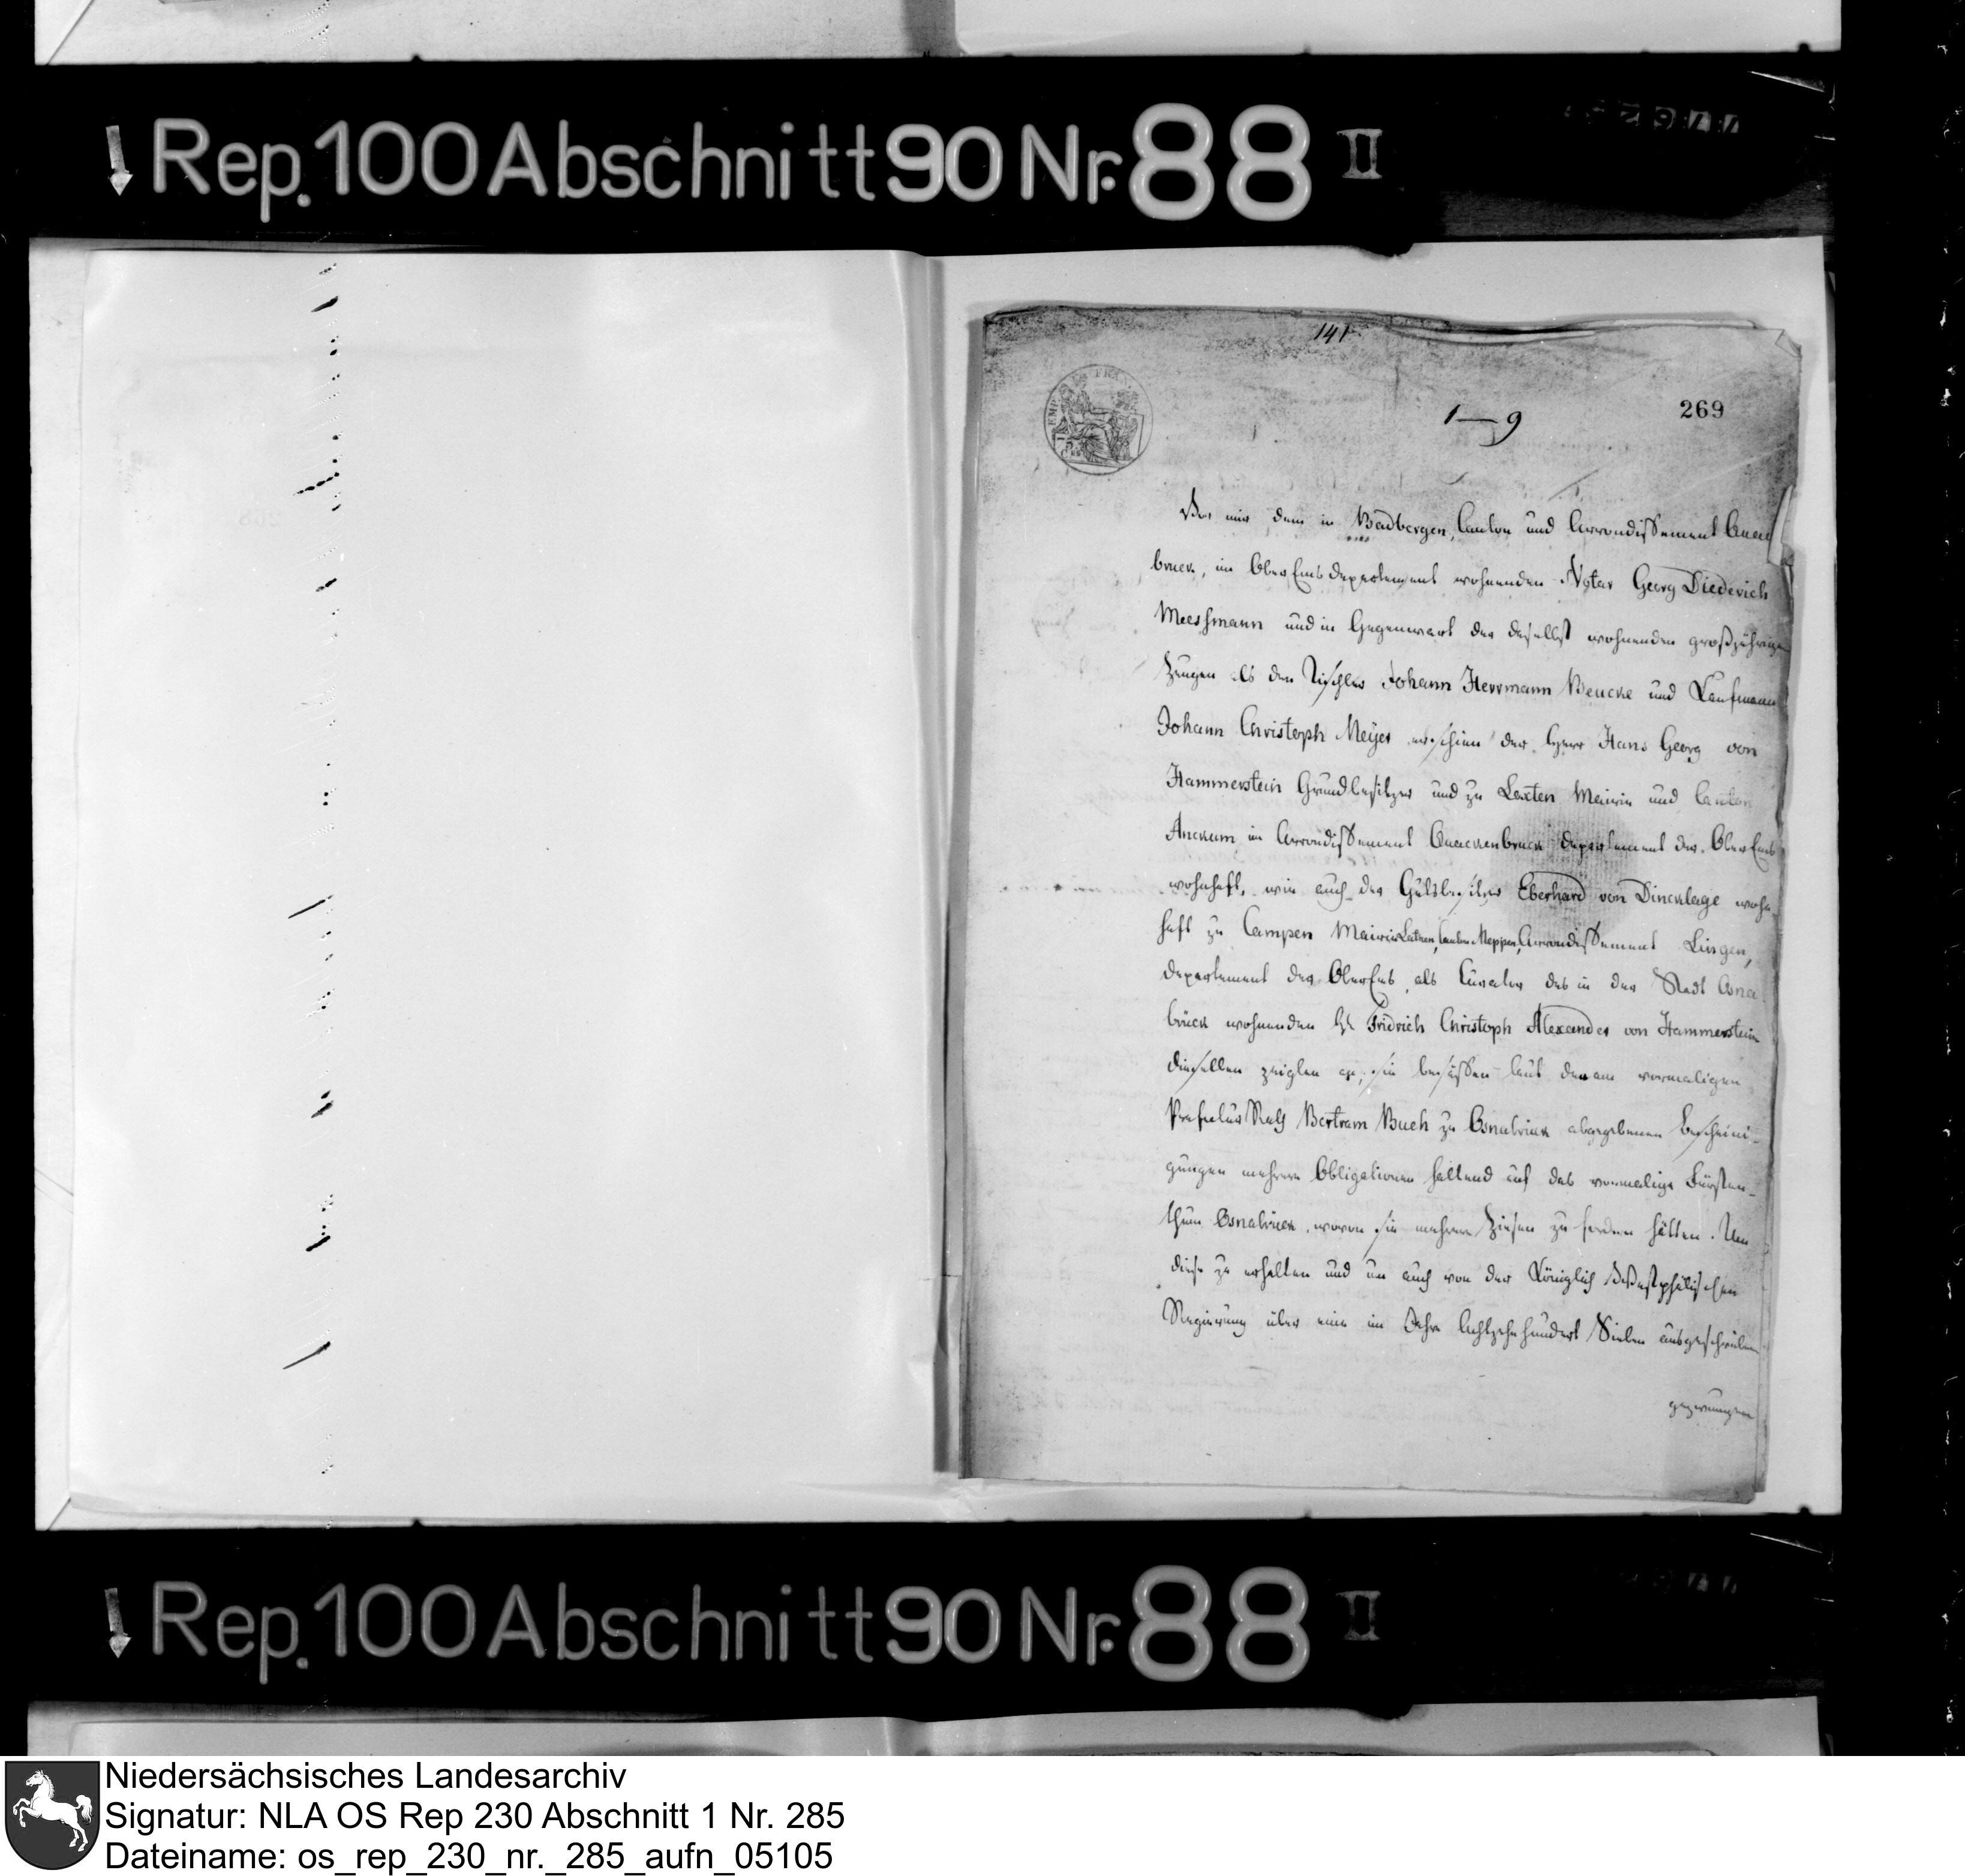 Rep. 100 Abschnitt 90 Nr. 88 II
141
1—9
269
EMP FRAN
Vor mir dem in Badbergen, Canton und Arrondissement Quacken
bruck, im OberEmsdepartement wohnenden Notar Georg Diederich
Meessmann und in Gegenwart der daselbst wohnenden großjährigen
Zeugen als den Tischler Johann Herrmann Beucke und Kaufmann
Johann Christoph Meÿer erschien der Herr Hans Georg von
Hammerstein Grundbesitzer und zu Loxten Mairie und Canton
Anckum im Arrondissement Quackenbruck Departement der OberEms
wohnhaft, wie auch der Gutsbesitzer Eberhard von Dincklage wohn-
haft zu Campen Mairie Lathen, Canton Meppen, Arrondissement Lingen,
Departement der OberEms, als Curator des in der Stadt Osna
brück wohnenden H. Fridrich Christoph Alexander von Hammerstein
dieselben zeigten an, sie besässen laut denen vormaligen
Prefectur Rath Bertram Buch zu Osnabrück abgegebenen Bescheini-
gungen mehrere Obligationen haltend auf das vormalige Fürsten-
thum Osnabrück, wovon sie mehrere Zinsen zu fordern hätten. Um
diese zu erhalten und um auch von der Königlich Westphälischen
Regierung über eine im Jahre Achtzehnhundert Sieben ausgeschriebene
gezwungene
Rep. 100 Abschnitt 90 Nr. 88 II
Niedersächsisches Landesarchiv
Signatur: NLA OS Rep 230 Abschnitt 1 Nr. 285
Dateiname: os_rep_230_nr._285_aufn_05105